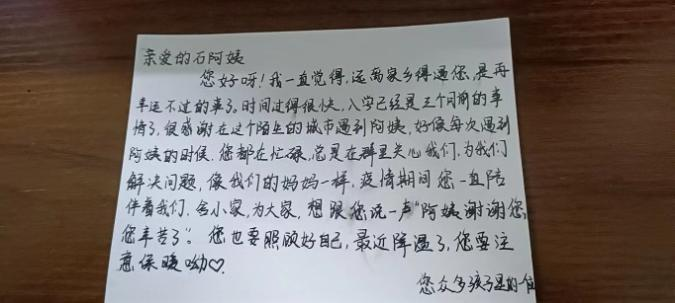 亲爱的石阿姨
您好呀!我一直觉得,远离家乡得遇您,是再
幸运不过的事了。时间过得很快,入学已经是三个月前的事
情了,很感谢在这个陌生的城市遇到阿姨,好像每次遇到
阿姨的时候,您都在忙碌,总是在群里关心我们,为我们
解决问题,像我们的妈妈一样,疫情期间您一直陪
伴着我们,舍小家,为大家,想跟您说一声“阿姨谢谢您,
您辛苦了”。您也要照顾好自己,最近降温了,您要注
意保暖呦♡.
您众多孩子里的一位